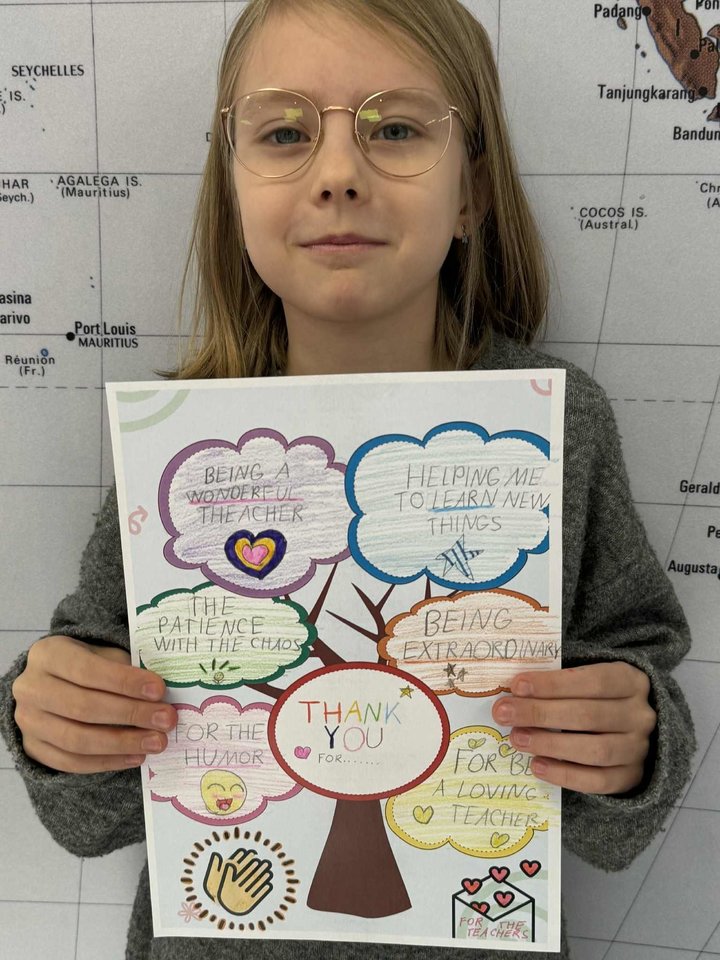 Padang
SEYCHELLES
IS.
Tanjungkarang
AGALEGA IS.
(Mauritius)
COCOS IS.
(Austral.)
Port Louis
MAURITIUS
Réunion
(Fr.)
BEING A
WONDERFUL
THEACHER
HELPING ME
TO LEARN NEW
THINGS
THE
PATIENCE
WITH THE CHAOS
BEING
EXTRAORDINARY
THANK
YOU
FOR......
FOR THE
HUMOR
FOR BE
A LOVING
TEACHER
FOR THE
TEACHERS